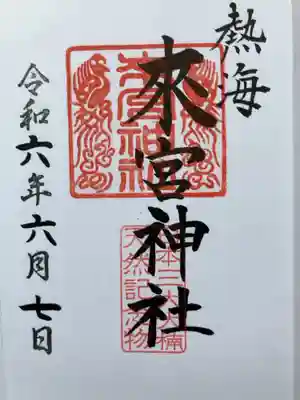 熱海
來宮神社
令和六年六月七日
來宮神社
日本三大大楠
天然記念物